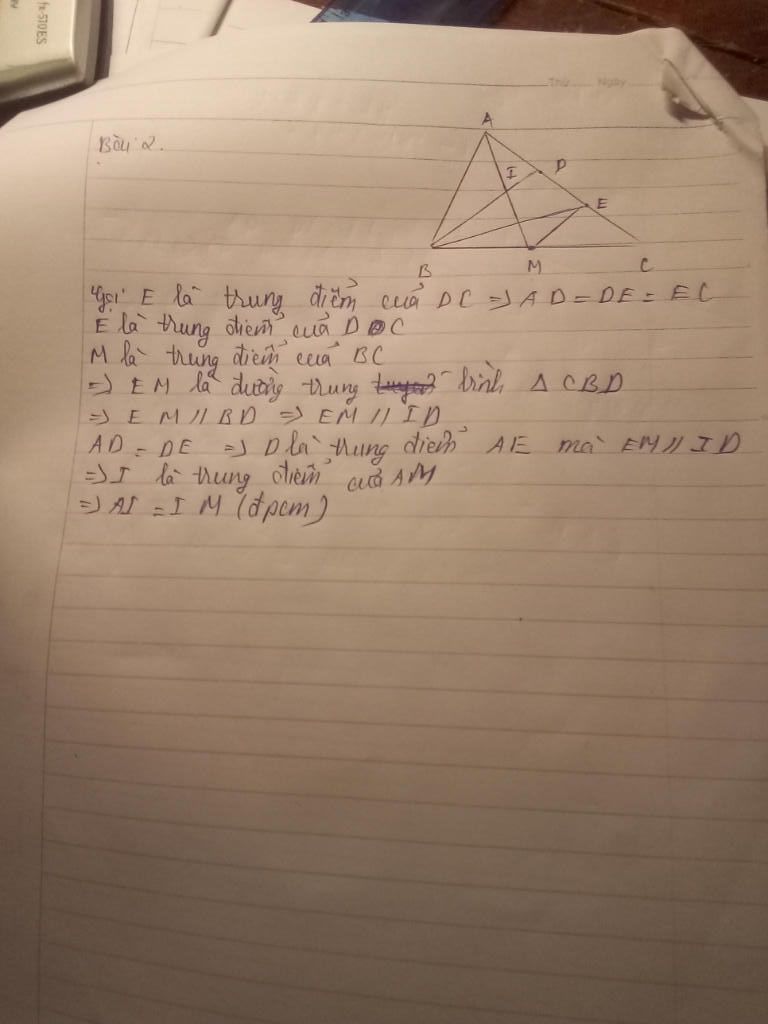 fx-570ES
Thứ Ngày
Bài 2.
A
I D
E
B M C
Gọi E là trung điểm của DC => AD = DE = EC
E là trung điểm của DC
M là trung điểm của BC
=> EM là đường trung bình Δ CBD
=> EM // BD => EM // ID
AD = DE => D là trung điểm AE mà EM // ID
=> I là trung điểm của AM
=> AI = IM (đpcm)